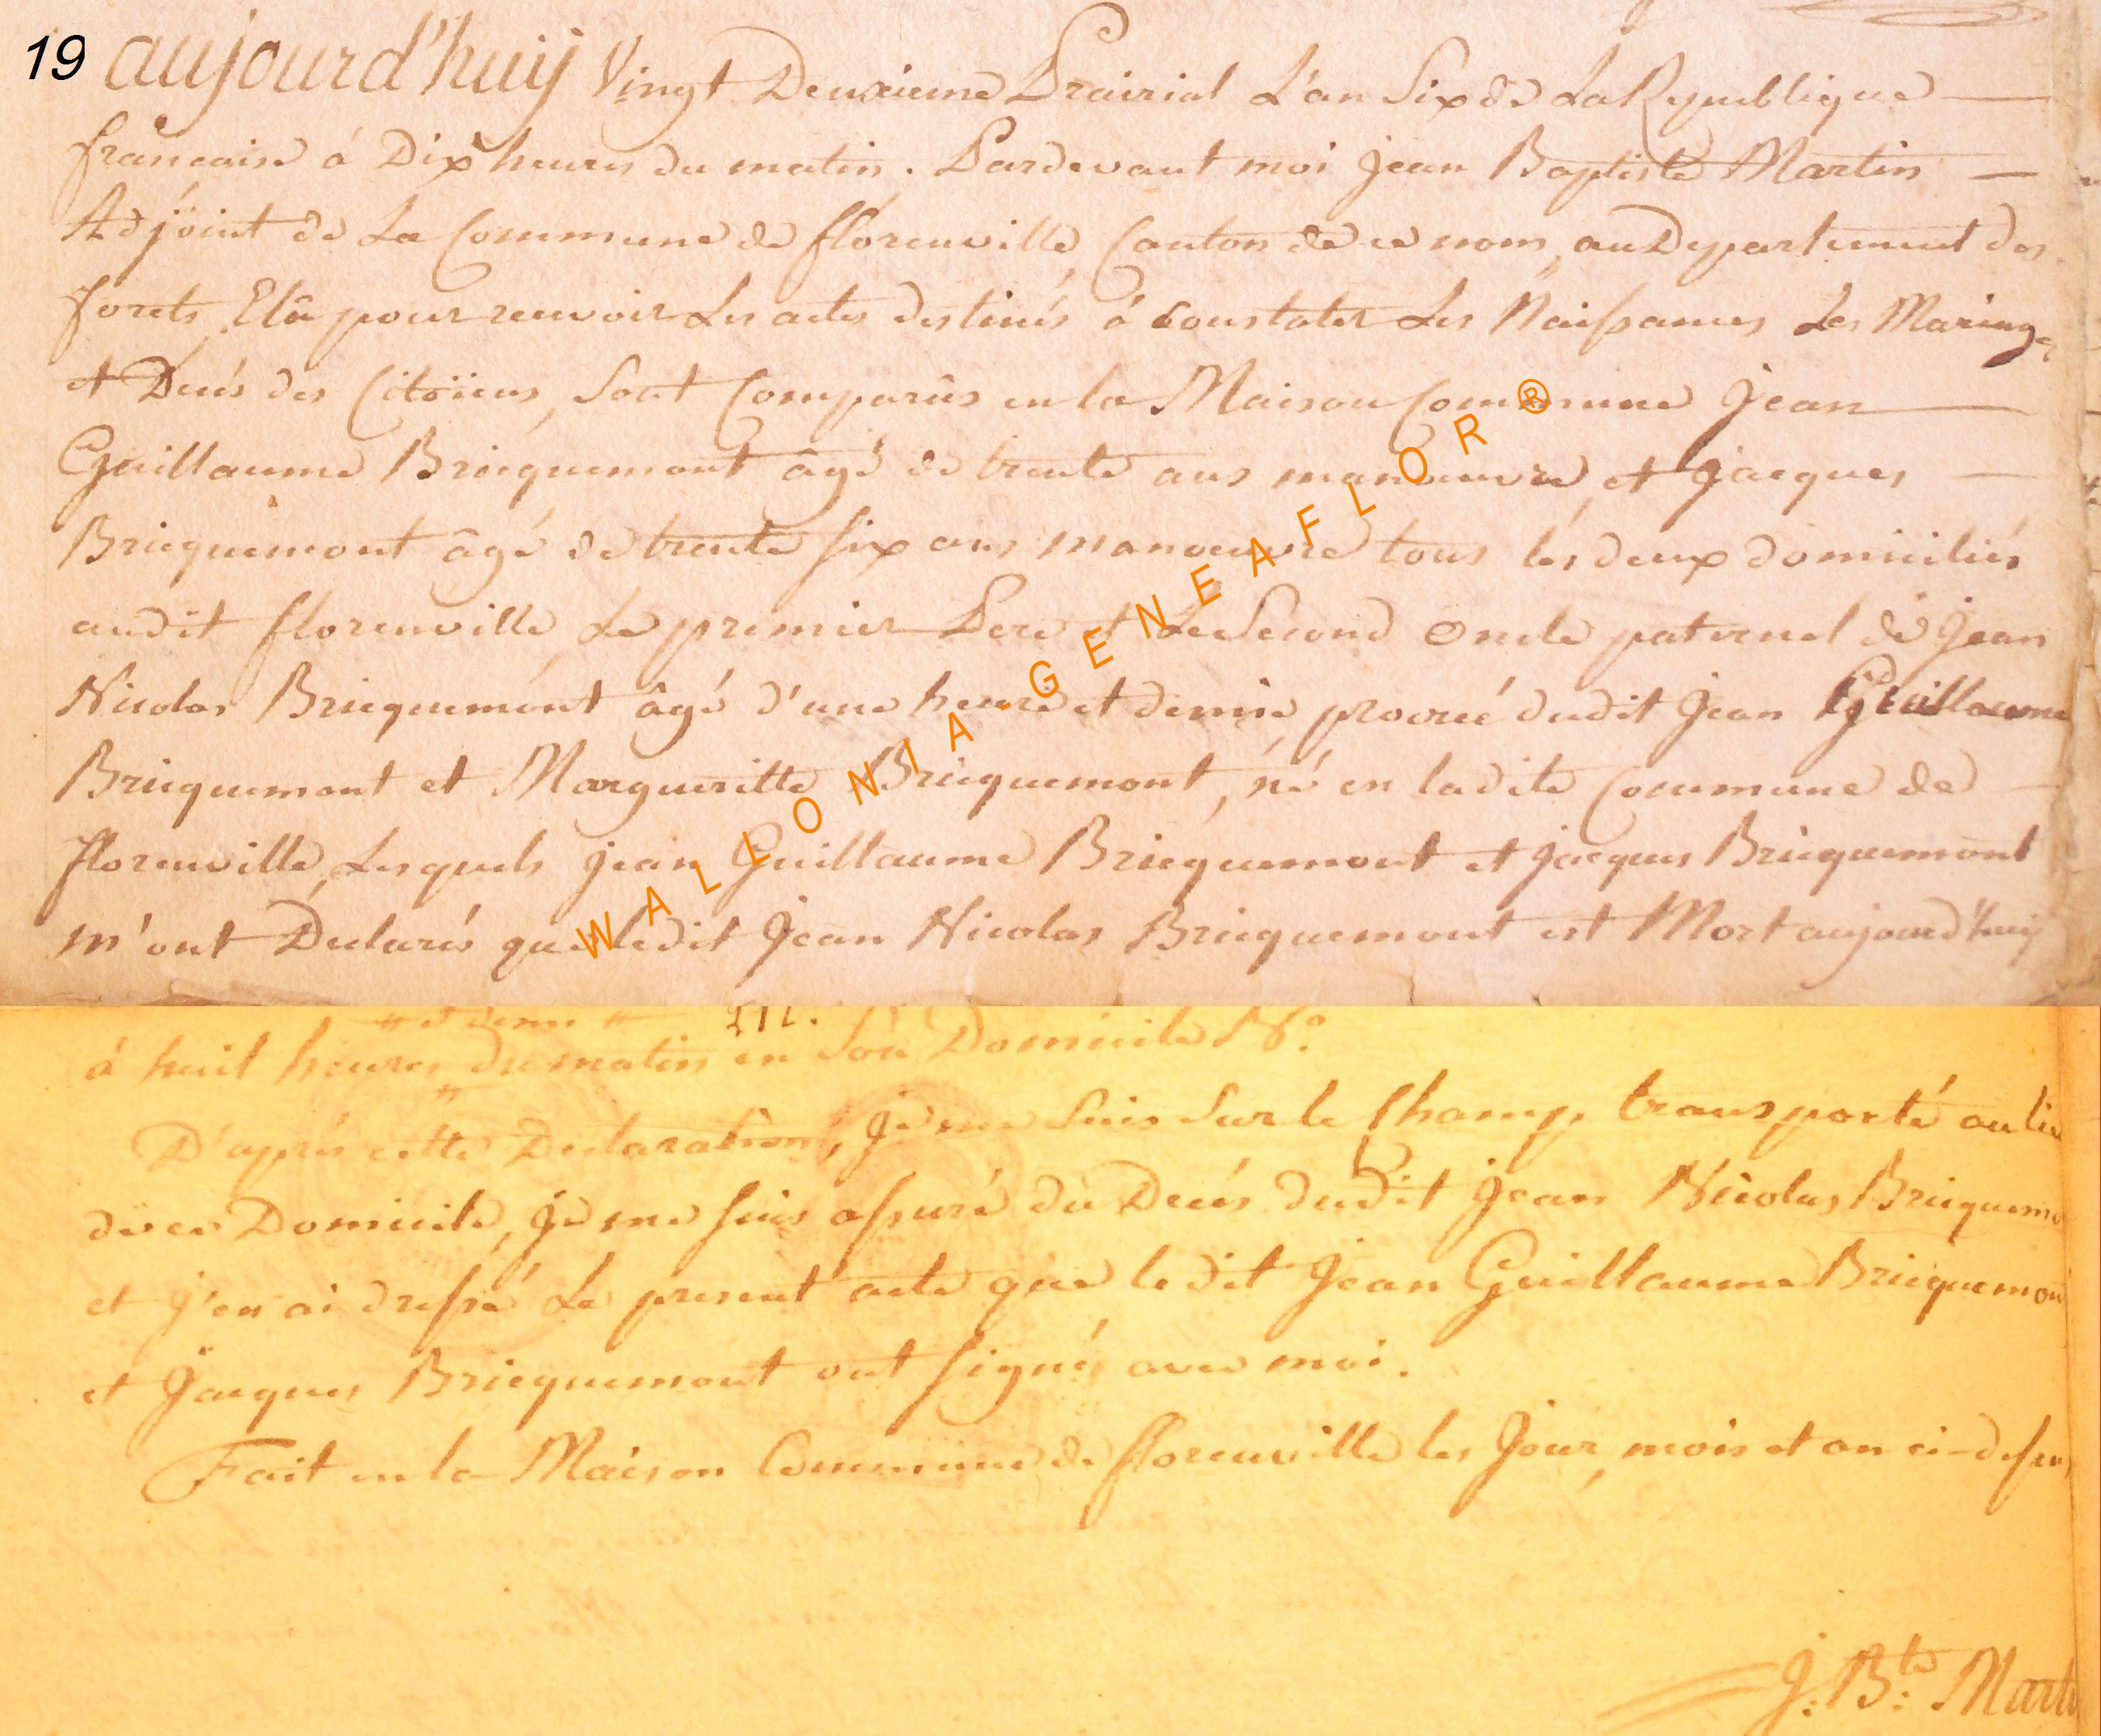 19 aujourd'huy Vingt Deuxieme Prairial L'an Six de La Republique
francaise á Dix heures du matin. Pardevant moi jean Baptiste Martin
Adjoint de La Commune de florenville, Canton de ce nom, au Departement des
forets, Elû pour recevoir Les actes destinés á Constater Les Naissances Les Mariages
et Decés des Citoïens, Sont Comparûs en la Maison Commune Jean
Guillaume Bricquemont âgé de trente ans manoeuvre, et Jacques
Bricquemont âgé de trente six ans manoeuvre tous les deux domiciliés
audit florenville, Le premier Pere et Le Second Oncle paternel de Jean
Nicolas Bricquemont âgé d'une heure et demie, procréé dudit Jean Guillaume
Bricquemont et Margueritte Bricquemont, né en ladite Commune de
florenville, Lesquels Jean Guillaume Bricquemont et Jacques Bricquemont
m'ont Declarés que ledit Jean Nicolas Bricquemont est Mort aujourd'huy
" et demie "
á huit heures du matin en Son Domicile N°.
D'aprés cette Declaration, Je me Suis Sur le Champ transporté au lieu
de ce Domicile, Je me suis assuré du Decés dudit Jean Nicolas Bricquemo
et J'en ai dressé Le present acte que ledit Jean Guillaume Bricquemon
et Jacques Bricquemont ont signés avec moi.
Fait en la Maison Commune de florenville les Jour, mois et an ci-dessus
J: Bte: Marti
WALLONIA-GENEAFLOR®